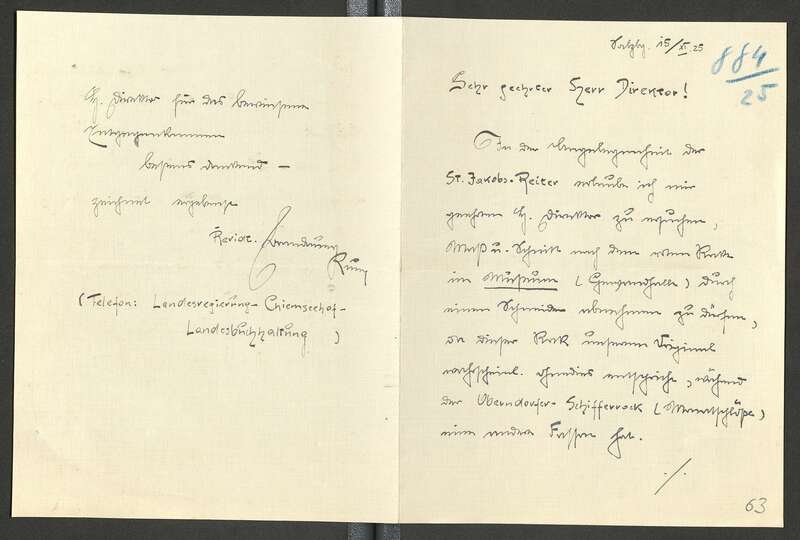 Salzbg. 15/XI. 25
884/25
Sehr geehrter Herr Direktor!
In der Angelegenheit der
St. Jakobs-Reiter erlaube ich mir
geehrten H. Direktor zu ersuchen,
Maß u. Schnitt nach dem roten Rocke
im Museum (Gewandhalle) durch
einen Schneider abnehmen zu dürfen,
da dieser Rock unserem Original
wahrscheinl. ohnedies entspricht, während
der Oberndorfer-Schifferrock
eine andere Fasson hat.
./.
63
H. Direktor für das bewiesene
Entgegenkommen
bestens dankend –
zeichnet ergebenst
Revid.
(Telefon: Landesregierung- Chiemseehof-
Landesbuchhaltung )